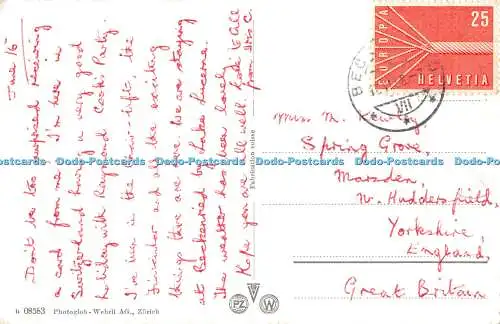 June 16
Don't be too surprised receiving
a card from me. I'm here in
Switzerland having a very good
holiday with Raymond Cook's Party.
I've been in the chair-lift, the
funicular and all the exciting
things there are above. We are staying
at Beckenried by Lake Lucerne.
The weather has been lovely.
Hope you are all well. Love to All
from
EUROPA
25
HELVETIA
BEC
VII
Miss M.
Spring Grove,
Marsden,
Nr. Huddersfield,
Yorkshire,
England,
Great Britain
Fabrication suisse
08563 Photoglob-Wehrli AG., Zürich
PZ
W
Dodo-Postcards Dodo-Postcards Dodo-Postcards Dodo-Postcards Dodo-Postcards